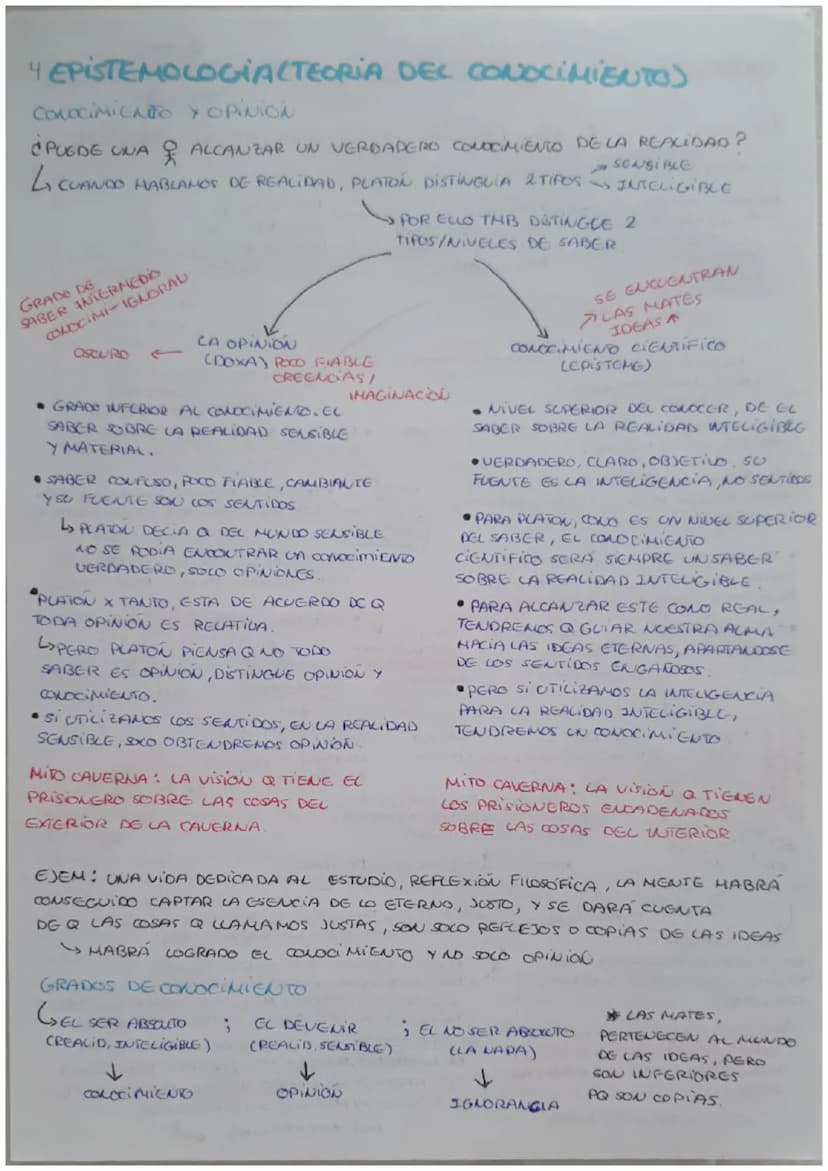 4 EPISTEMOLOGIA (TEORÍA DEL CONOCIMIENTO)
CONOCIMIENTO Y OPINIÓN
¿PUEDE UNA ALCANZAR UN VERDADERO CONOCIMIENTO DE LA REALIDAD?
↳ CUANDO HABLAMOS DE REALIDAD, PLATÓN DISTINGUÍA 2 TIPOS → SENSIBLE
→ INTELIGIBLE
→ POR ELLO TMB DISTINGUE 2
TIPOS/NIVELES DE SABER
GRADO DE
SABER INTERMEDIO
CONOCIMI-IGNORAN
OSCURO ←
LA OPINIÓN
(DOXA) POCO FIABLE
CREENCIAS/
IMAGINACIÓN
• GRADO INFERIOR AL CONOCIMIENTO. EL
SABER SOBRE LA REALIDAD SENSIBLE
Y MATERIAL.
• SABER CONFUSO, POCO FIABLE, CAMBIANTE
Y SU FUENTE SON LOS SENTIDOS
↳ PLATÓN DECÍA Q DEL MUNDO SENSIBLE
NO SE PODÍA ENCONTRAR UN CONOCIMIENTO
VERDADERO, SOLO OPINIONES.
• PLATÓN X TANTO, ESTA DE ACUERDO DE Q
TODA OPINIÓN ES RELATIVA.
↳ PERO PLATÓN PIENSA Q NO TODO
SABER ES OPINIÓN, DISTINGUE OPINIÓN Y
CONOCIMIENTO.
• SI UTILIZAMOS LOS SENTIDOS, EN LA REALIDAD
SENSIBLE, SOLO OBTENDREMOS OPINIÓN.
MITO CAVERNA: LA VISIÓN Q TIENE EL
PRISIONERO SOBRE LAS COSAS DEL
EXTERIOR DE LA CAVERNA.
SE ENCUENTRAN
↗ LAS MATES
IDEAS ↗
CONOCIMIENTO CIENTÍFICO
(EPISTEME)
• NIVEL SUPERIOR DEL CONOCER, DE EL
SABER SOBRE LA REALIDAD INTELIGIBLE
• VERDADERO, CLARO, OBJETIVO. SU
FUENTE ES LA INTELIGENCIA, NO SENTIDOS
• PARA PLATÓN, CONO ES UN NIVEL SUPERIOR
DEL SABER, EL CONOCIMIENTO
CIENTÍFICO SERÁ SIEMPRE UN SABER
SOBRE LA REALIDAD INTELIGIBLE.
• PARA ALCANZAR ESTE CONO REAL,
TENDREMOS Q GUIAR NUESTRA ALMA
HACIA LAS IDEAS ETERNAS, APARTANDOSE
DE LOS SENTIDOS ENGAÑOSOS.
• PERO SI UTILIZAMOS LA INTELIGENCIA
PARA LA REALIDAD INTELIGIBLE,
TENDREMOS UN CONOCIMIENTO
MITO CAVERNA: LA VISIÓN Q TIENEN
LOS PRISIONEROS ENCADENADOS
SOBRE LAS COSAS DEL INTERIOR
EJEM: UNA VIDA DEDICADA AL ESTUDIO, REFLEXIÓN FILOSÓFICA, LA MENTE HABRÁ
CONSEGUIDO CAPTAR LA ESENCIA DE LO ETERNO, JUSTO, Y SE DARÁ CUENTA
DE Q LAS COSAS Q LLAMAMOS JUSTAS, SON SOLO REFLEJOS O COPIAS DE LAS IDEAS
↳ HABRÁ LOGRADO EL CONOCIMIENTO Y NO SOLO OPINIÓN
GRADOS DE CONOCIMIENTO
↳ EL SER ABSOLUTO ; EL DEVENIR ; EL NO SER ABSOLUTO
(REALID. INTELIGIBLE) (REALID. SENSIBLE) (LA NADA)
↓ ↓ ↓
CONOCIMIENTO OPINIÓN IGNORANCIA
* LAS MATES,
PERTENECEN AL MUNDO
DE LAS IDEAS, PERO
SON INFERIORES
PQ SON COPIAS.